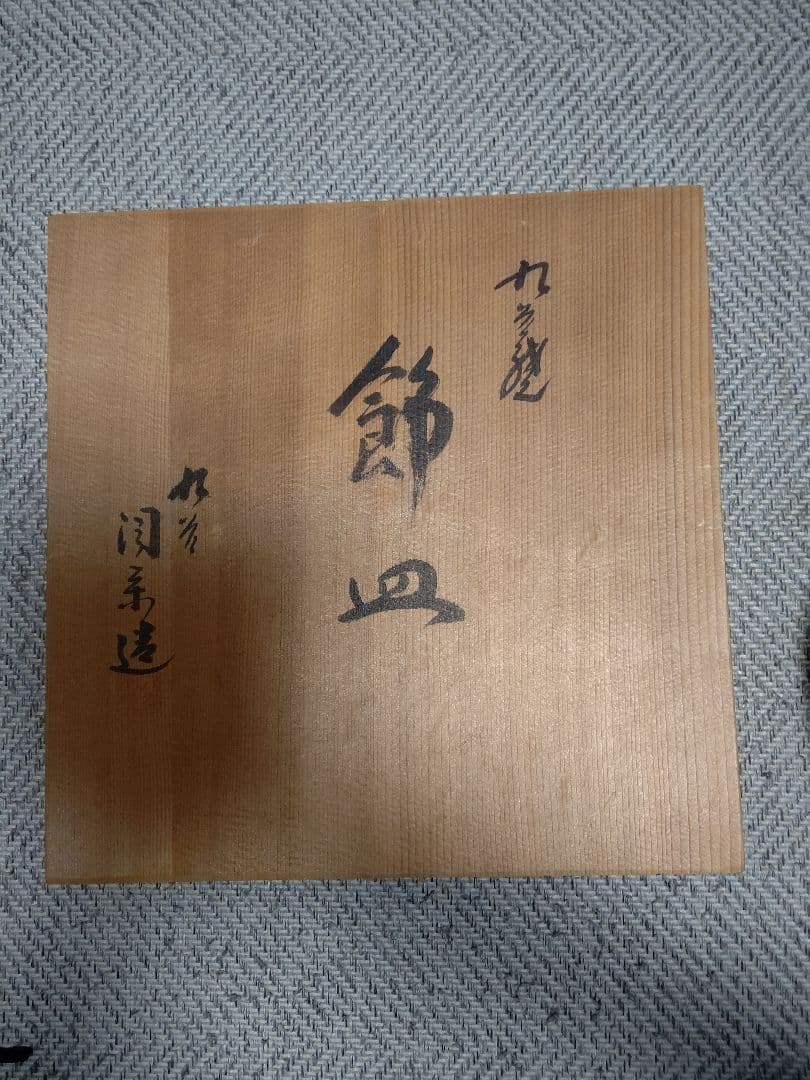 九谷焼
飾皿
九谷
関栄造